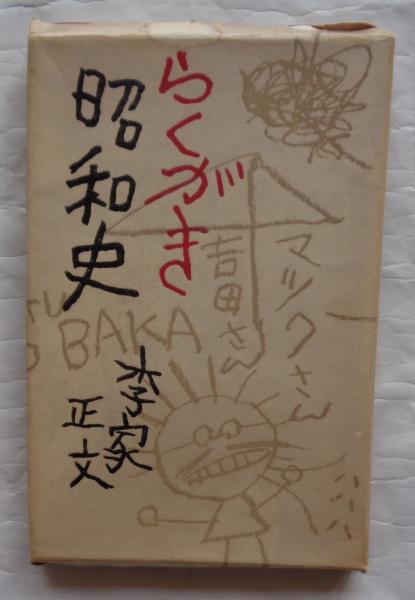 らくがき
昭和史
李家
正文
マックさん
吉田さん
BAKA